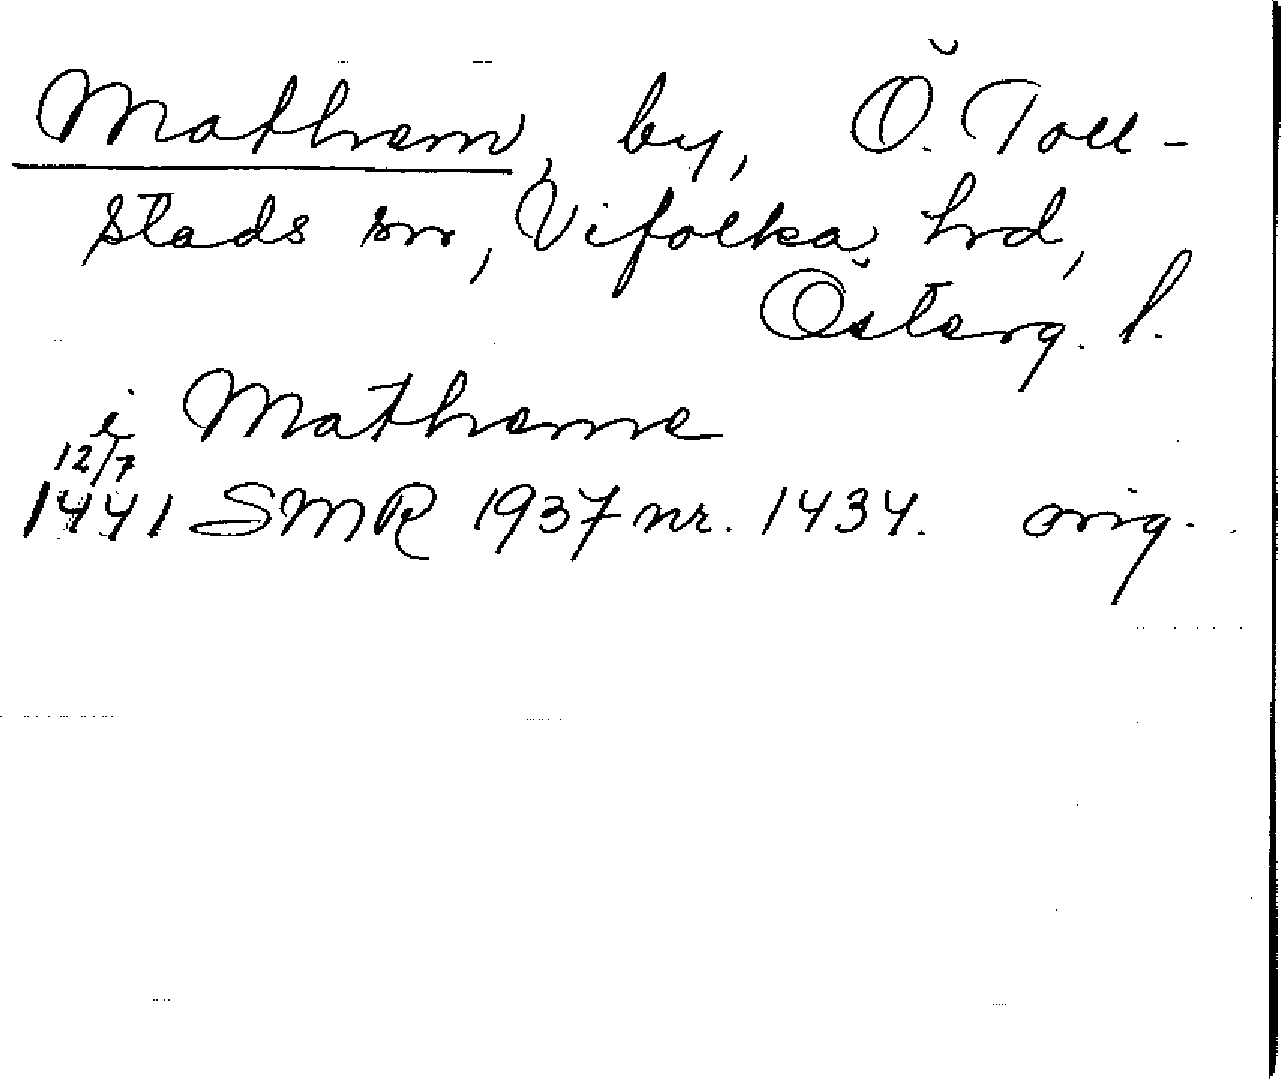 Mathem, by, Ö. Toll-
stads sn, Vifolka hrd,
Österg. l.
i Matheme
12/7
1441 SMR 1937 nr. 1434. orig.